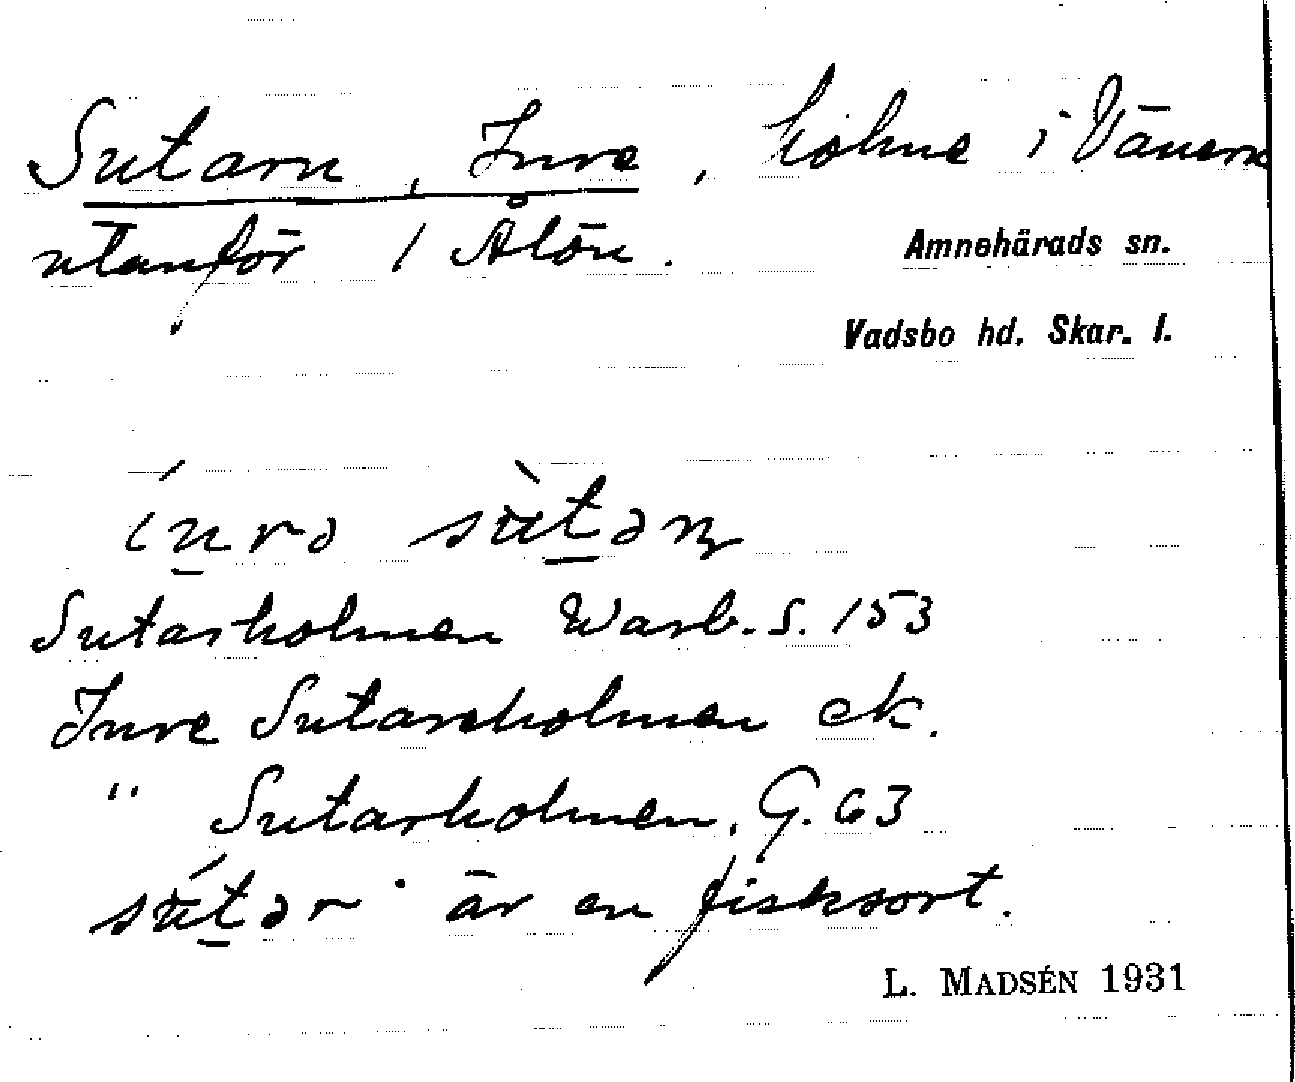 Sutarn, Inre, holme i Vänern
utanför / Ålön.
Amnehärads sn.
Vadsbo hd. Skar. l.
ínrə sùtəɳ
Sutarholmen Warb. S. 153
Inre Sutareholmen ek.
" Sutarholmen, G. 63
sútər är en fisksort.
L. MADSÉN 1931